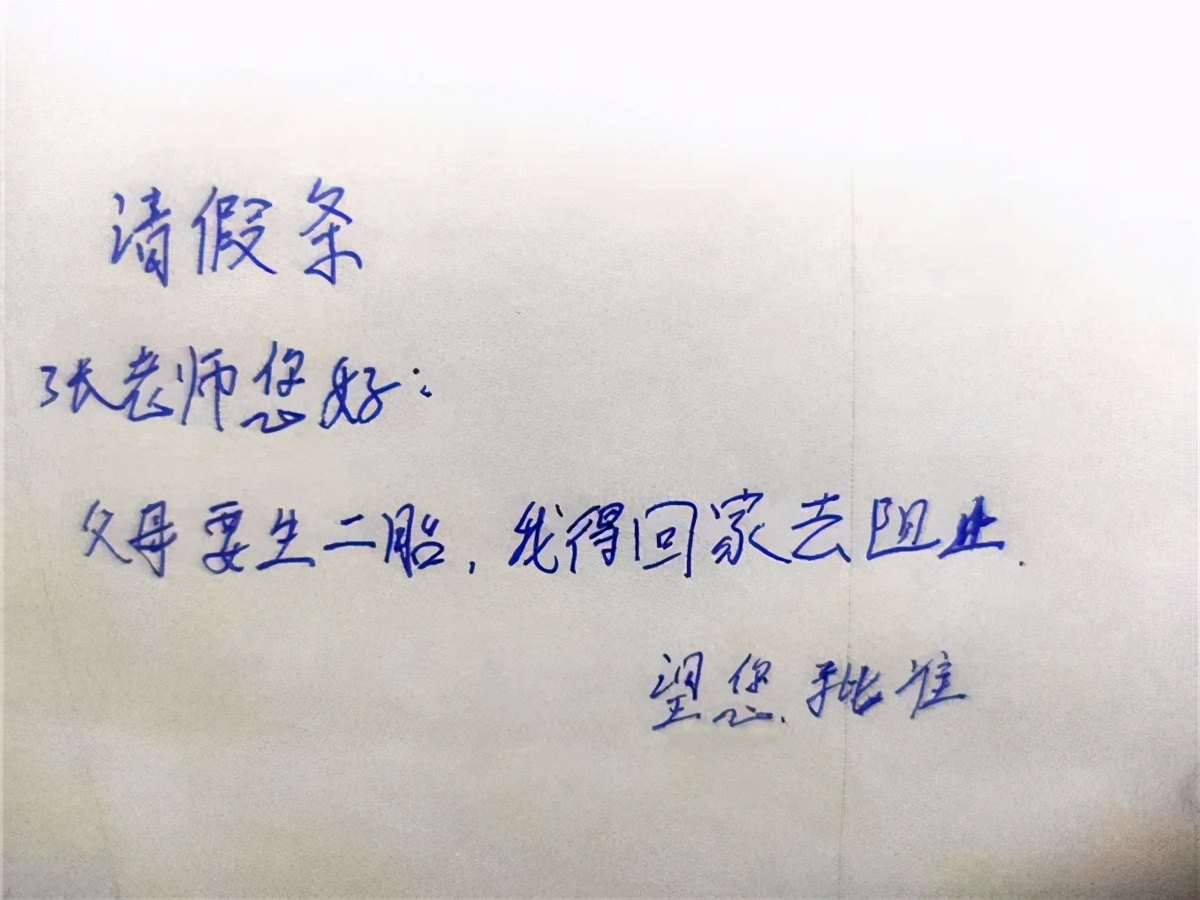 请假条
张老师您好:
父母要生二胎,我得回家去阻止.
望您.批准